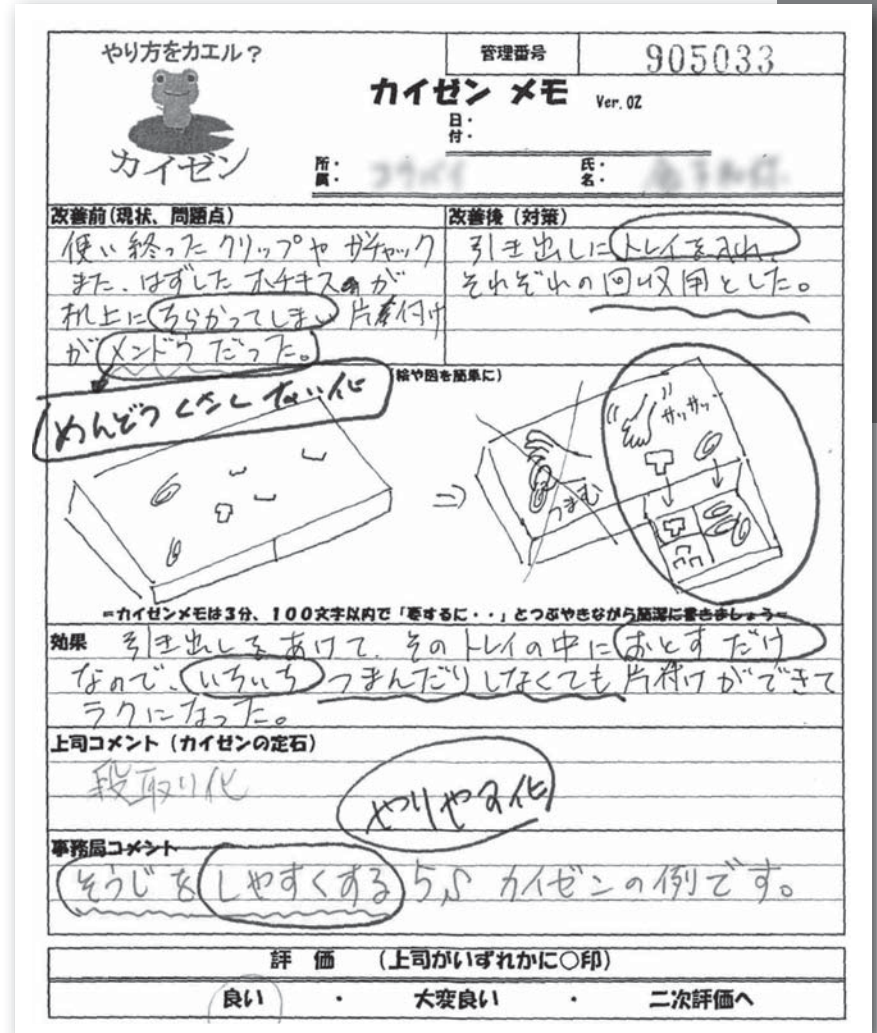 やり方をカエル？
カイゼン
管理番号
905033
カイゼン メモ Ver.02
日・
付・
所・
属・
氏・
名・
改善前(現状、問題点)
使い終ったクリップや ガチャック
また、はずした ホチキスが
机上に ちらかってしまい 片付け
が メンドウ だった。
めんどうくさくない化
改善後（対策）
引き出しに トレイを入れ、
それぞれの 回収用とした。
(絵や図を簡単に)
つまむ
⇒
サッサッ
＝カイゼンメモは３分、１００文字以内で「要するに・・」とつぶやきながら簡潔に書きましょう＝
効果
引き出しをあけて、そのトレイの中に おとす だけ
なので、いちいち つまんだり しなくても 片付け ができて
ラクになった。
上司コメント（カイゼンの定石）
段取り化
やりやす化
事務局コメント
そうじを しやすくする 5S カイゼンの例です。
評 価 （上司がいずれかに○印）
良い ・ 大変良い ・ 二次評価へ